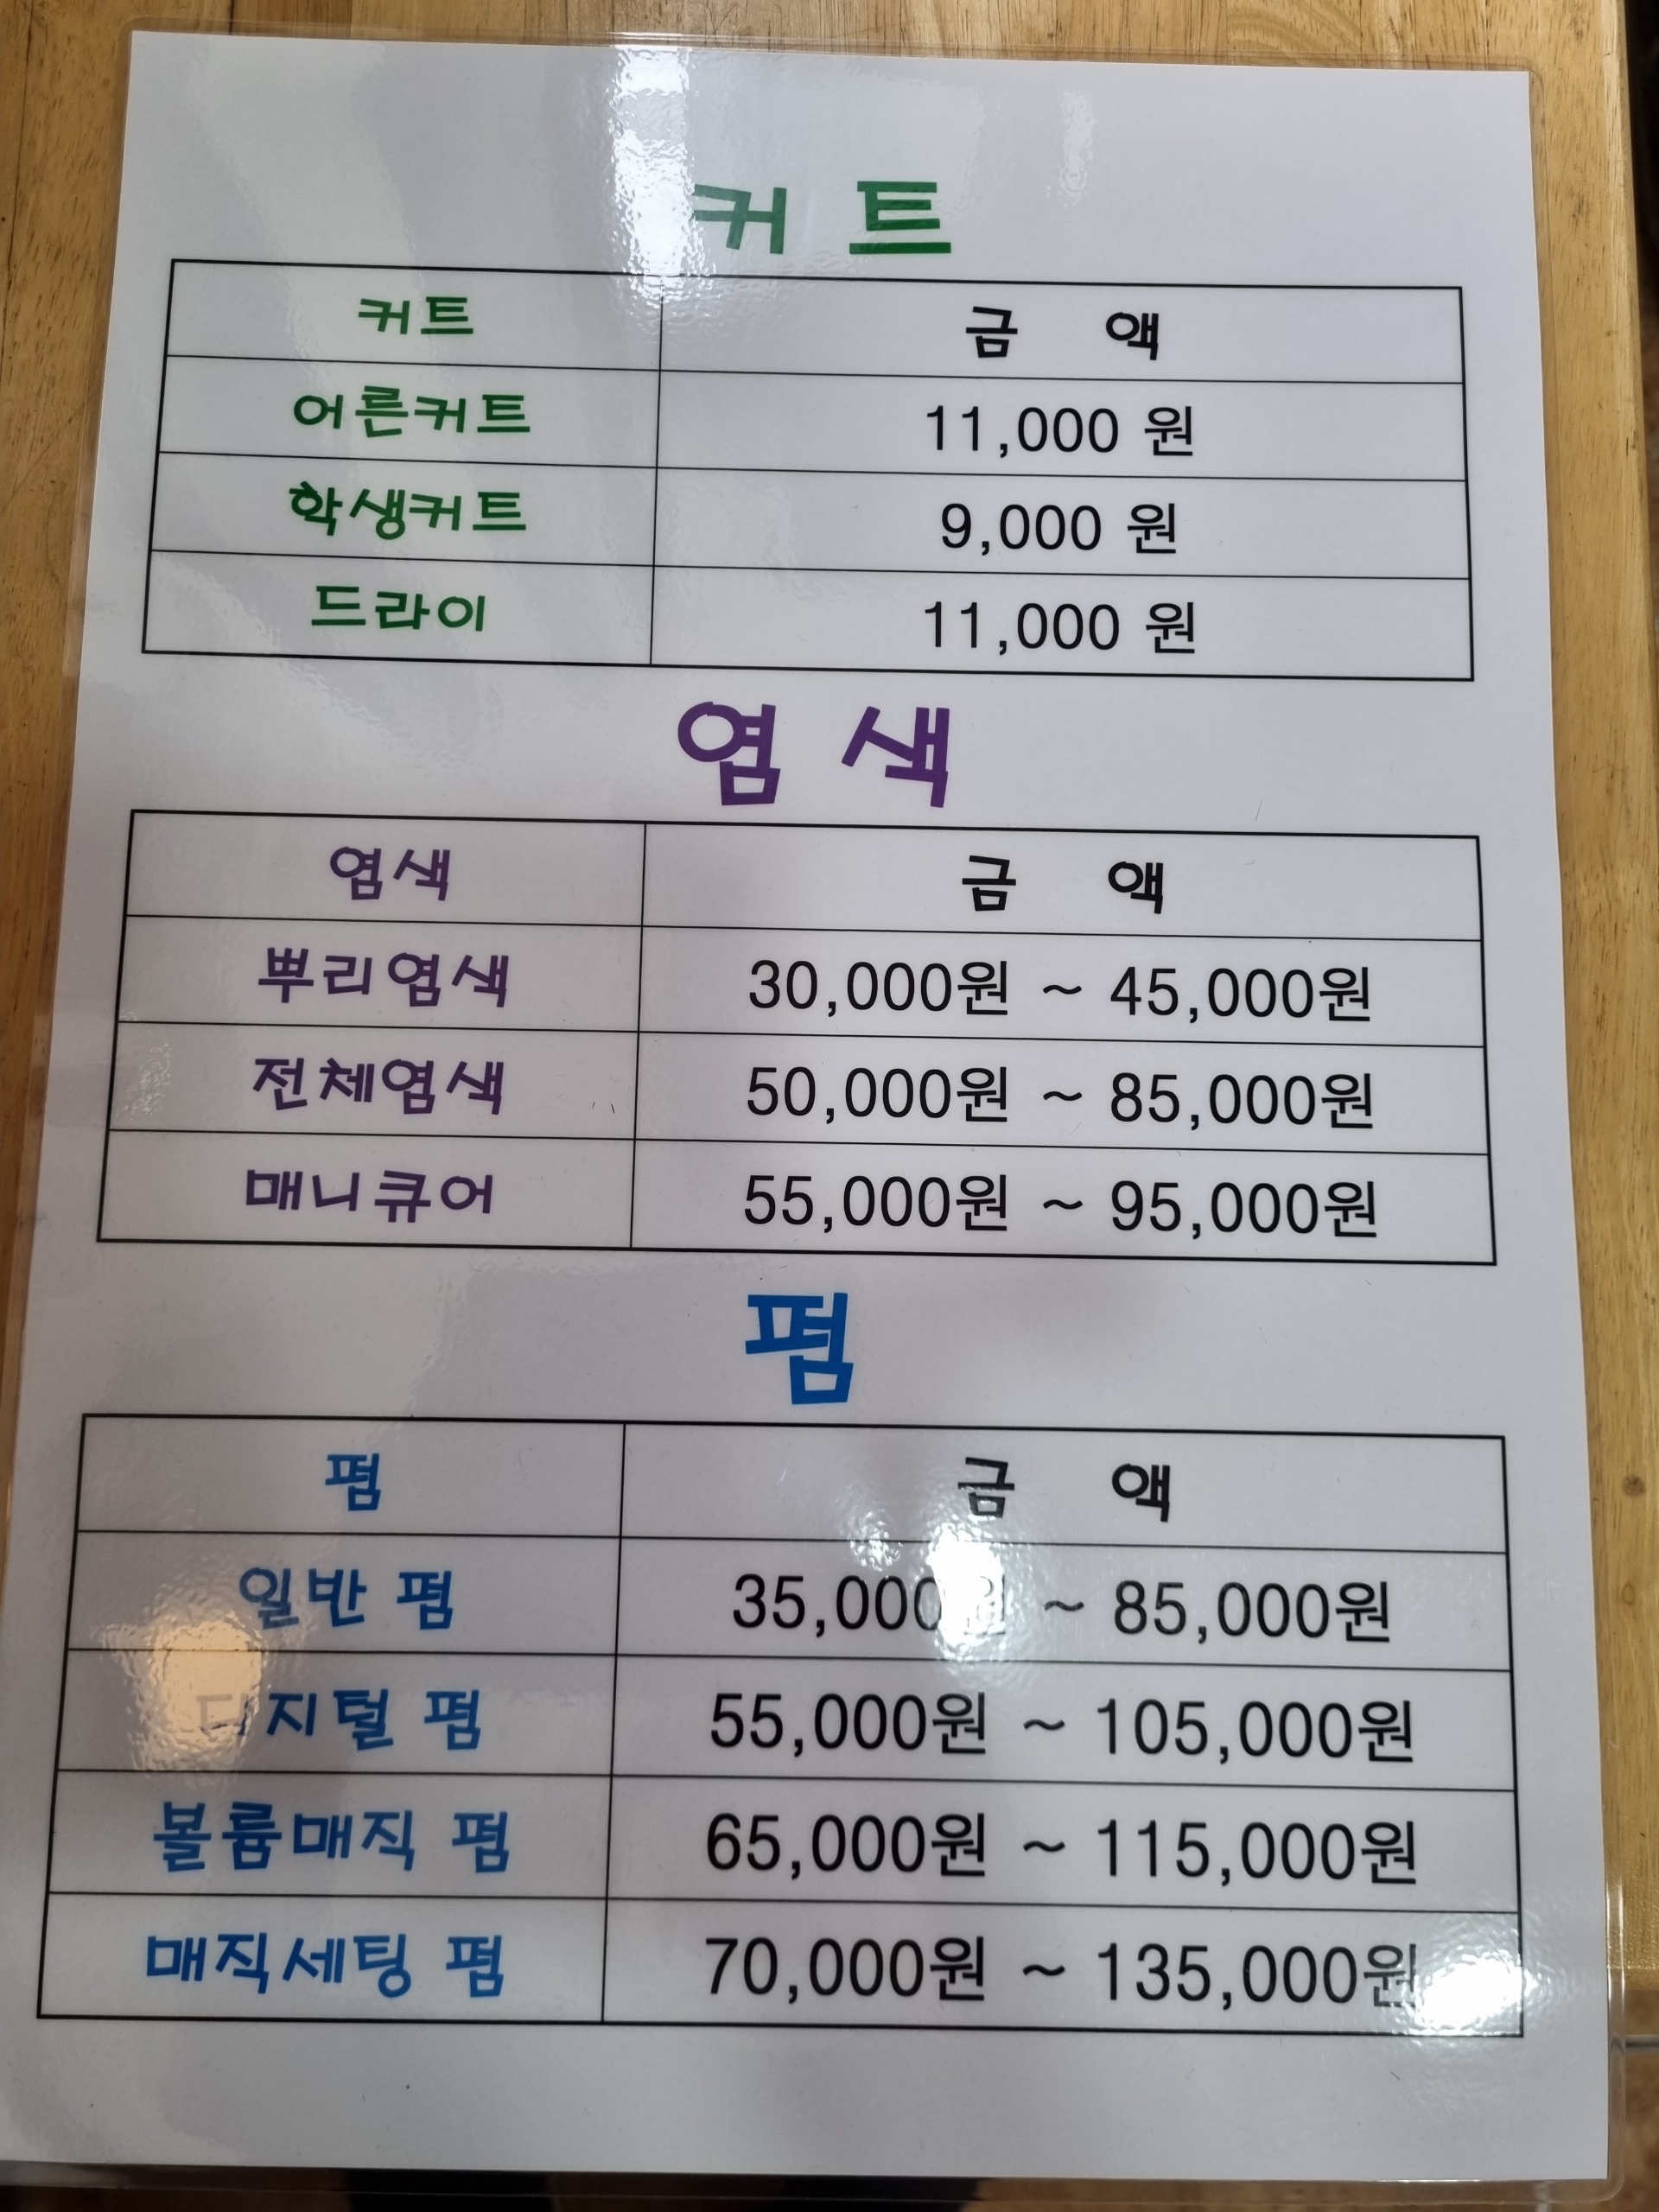 커 트
커트 금 액
어른커트 11,000 원
학생커트 9,000 원
드라이 11,000 원
염 색
염색 금 액
뿌리염색 30,000원 ~ 45,000원
전체염색 50,000원 ~ 85,000원
매니큐어 55,000원 ~ 95,000원
펌
펌 금 액
일반 펌 35,000원 ~ 85,000원
디지털 펌 55,000원 ~ 105,000원
볼륨매직 펌 65,000원 ~ 115,000원
매직세팅 펌 70,000원 ~ 135,000원